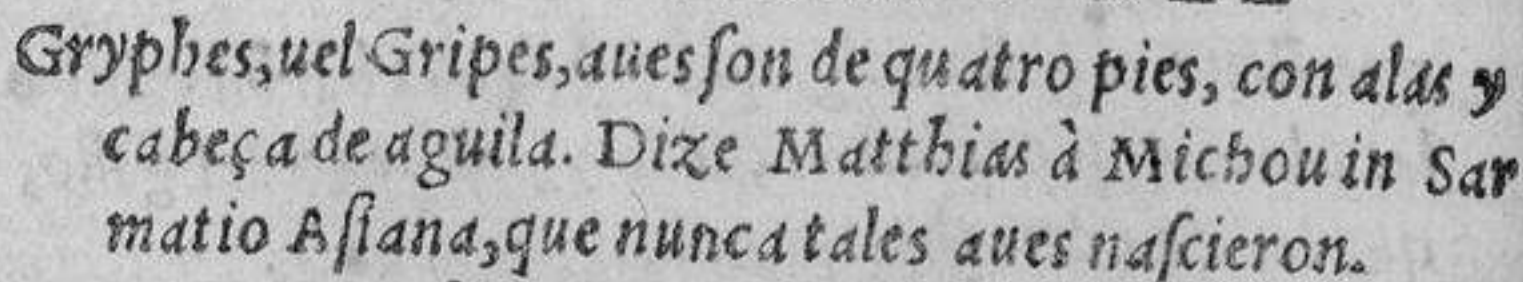 Gryphes, uel Gripes, aues ſon de quatro pies, con alas y
cabeça de aguila. Dize Matthias à Michou in Sar
matio Aſiana, que nunca tales aues naſcieron.